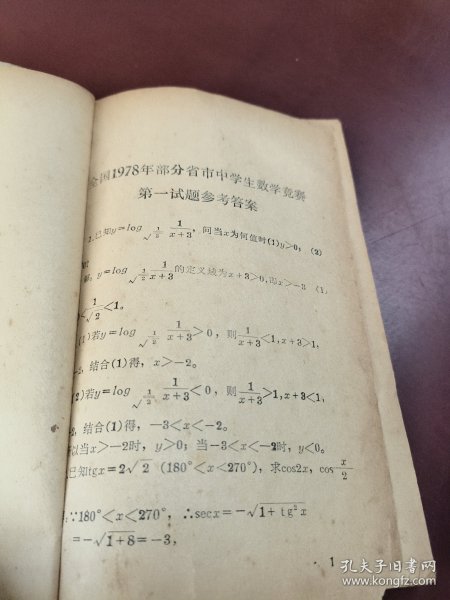 全国1978年部分省市中学生数学竞赛
第一试题参考答案
1.已知y=log_{√1/2} 1/(x+3)，问当x为何值时(1)y>0；(2)
解，y=log_{√1/2} 1/(x+3)的定义域为x+3>0，即x>-3 (1)
<√1/2<1。
(1)若y=log_{√1/2} 1/(x+3)>0，则1/(x+3)<1，x+3>1，
-2，结合(1)得，x>-2。
(2)若y=log_{√1/2} 1/(x+3)<0，则1/(x+3)>1，x+3<1，
-2，结合(1)得，-3<x<-2。
以当x>-2时，y>0；当-3<x<-2时，y<0。
已知tgx=2√2 (180°<x<270°)，求cos2x，cos x/2
∵180°<x<270°，∴secx=-√(1+tg²x)
=-√(1+8)=-3，
1
孔夫子旧书网
www.kongfz.com